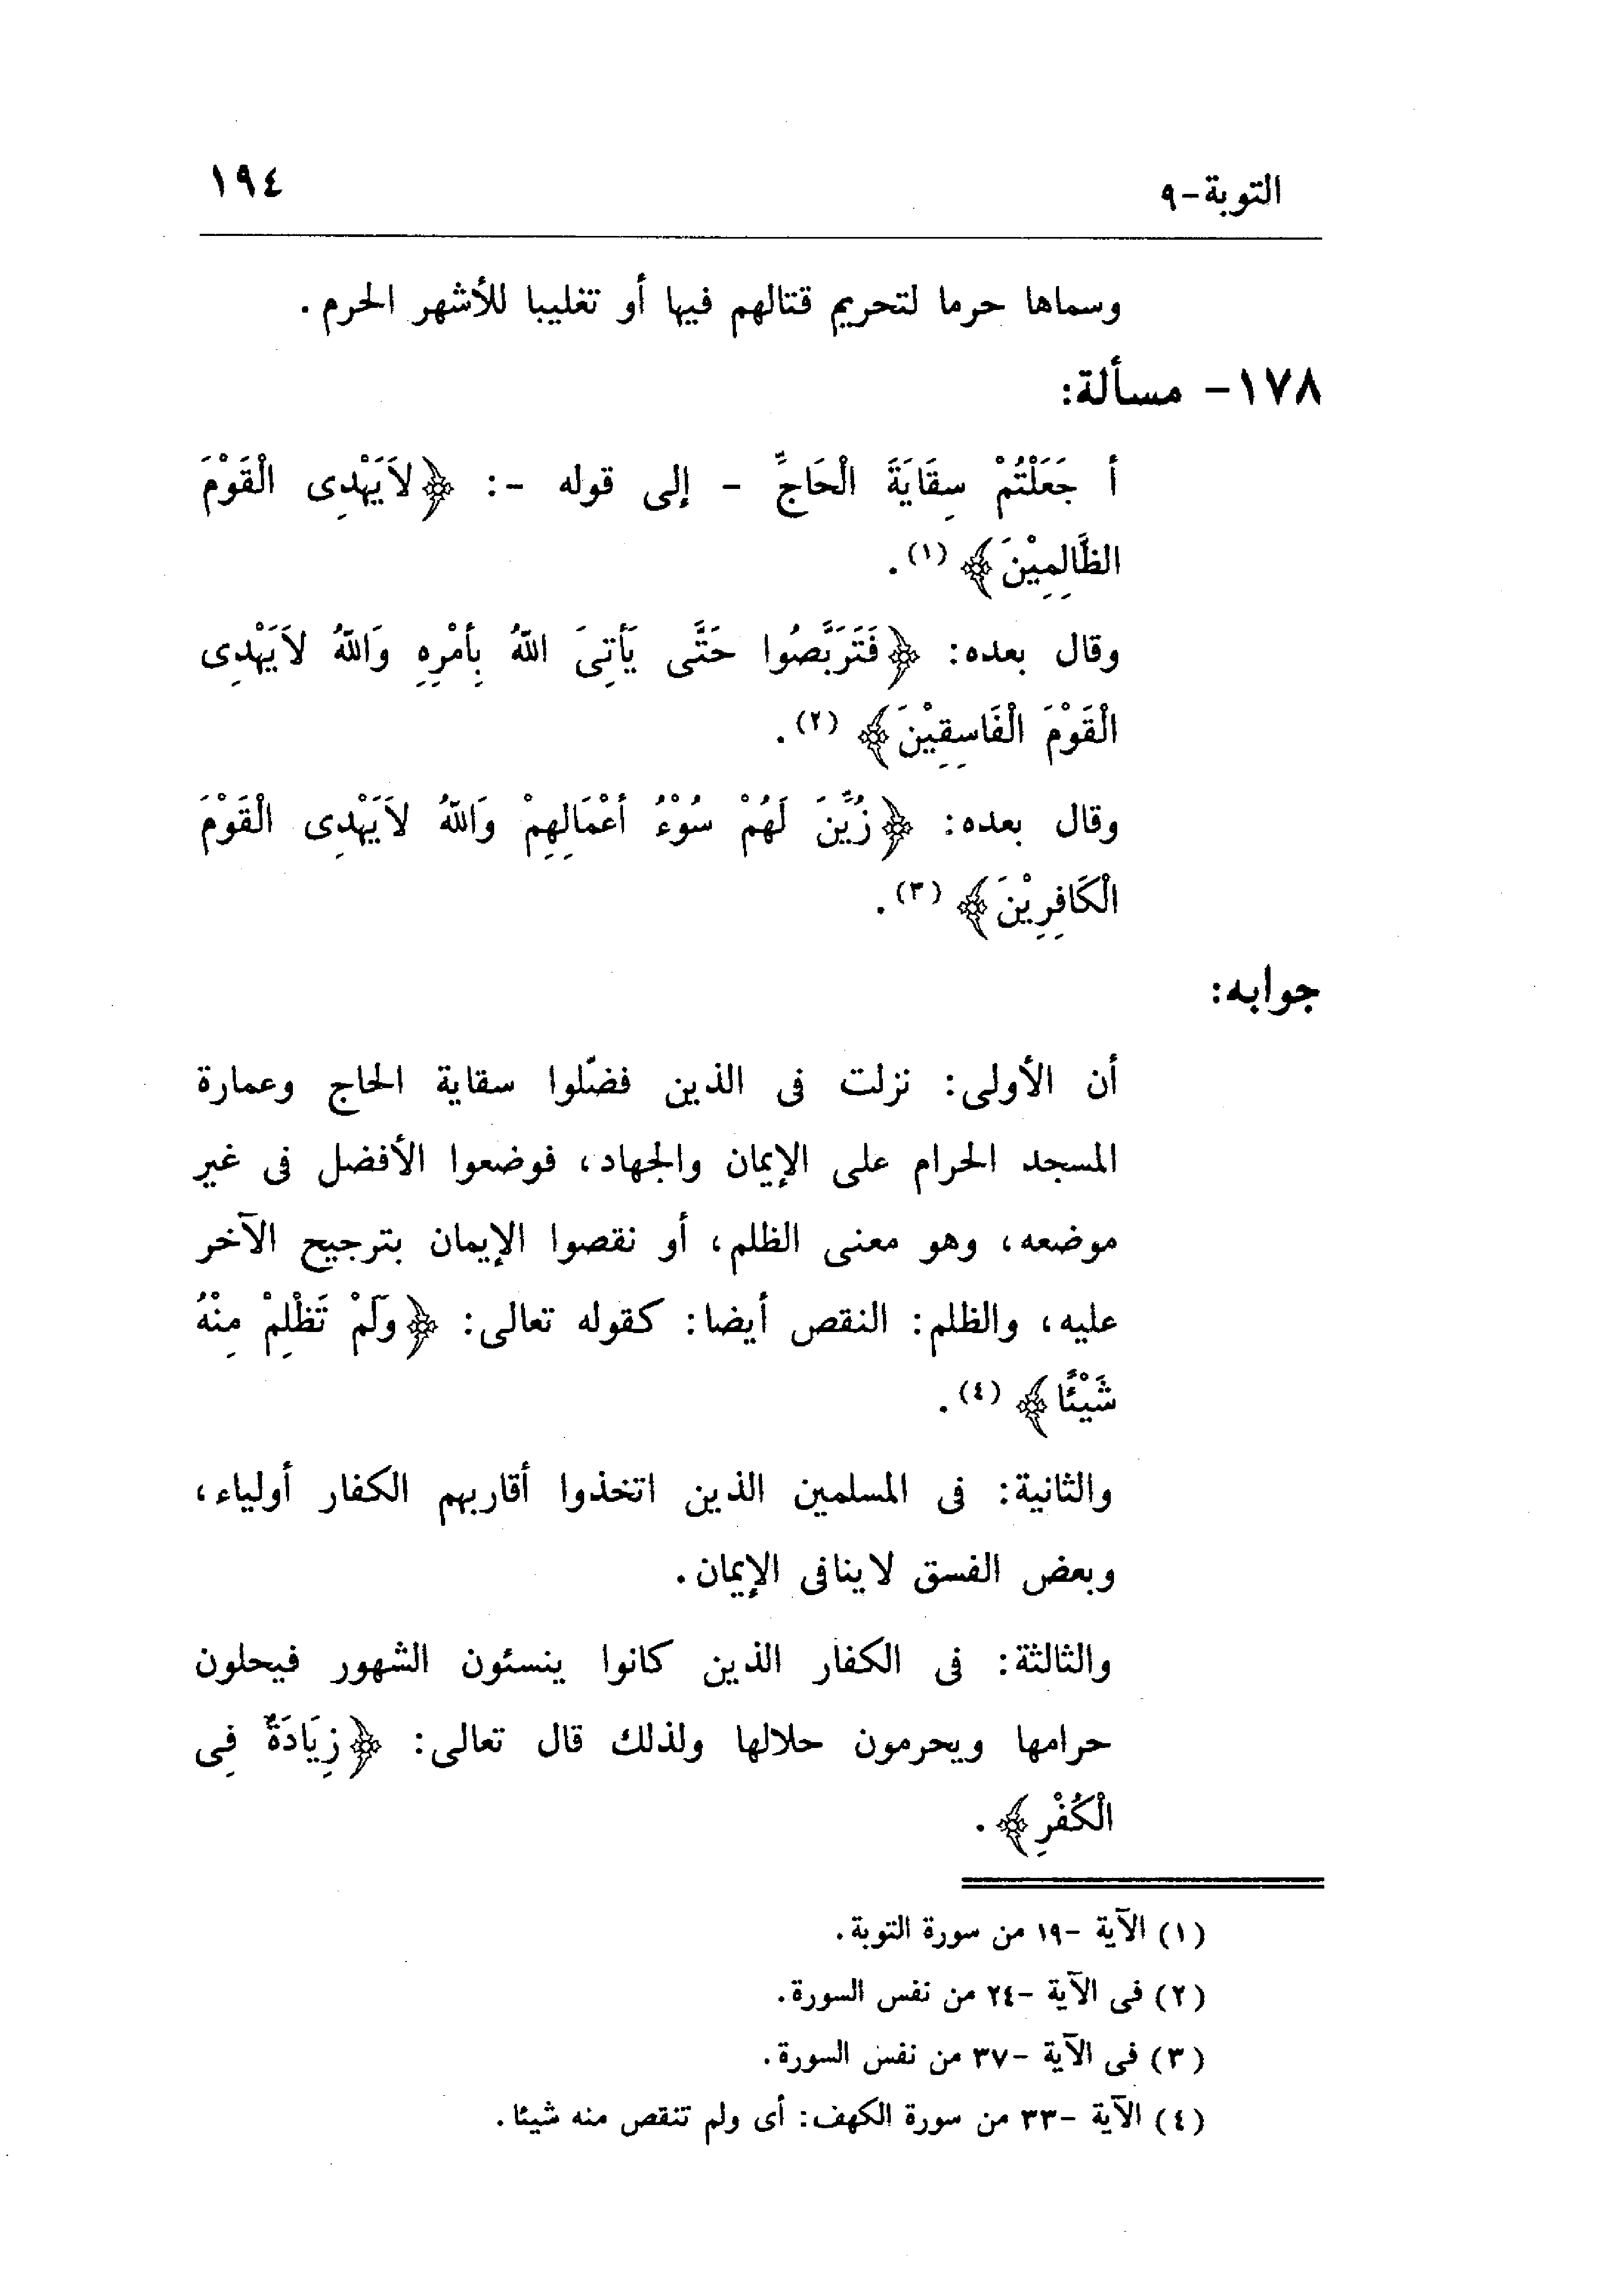 التوبة-٩
١٩٤
وسماها حرما لتحريم قتالهم فيها أو تغليبا للأشهر الحرم.
١٧٨- مسألة:
أ جَعَلْتُمْ سِقَايَةَ الْحَاجِّ - إلى قوله -: ﴿لاَيَهْدِى الْقَوْمَ
الظَّالِمِيْنَ﴾ (١).
وقال بعده: ﴿فَتَرَبَّصُوا حَتَّى يَأتِىَ اللهُ بِأمْرِهِ وَاللهُ لاَيَهْدِى
الْقَوْمَ الْفَاسِقِيْنَ﴾ (٢).
وقال بعده: ﴿زُيِّنَ لَهُمْ سُوْءُ أعْمَالِهِمْ وَاللهُ لاَيَهْدِى الْقَوْمَ
الْكَافِرِيْنَ﴾ (٣).
جوابه:
أن الأولى: نزلت فى الذين فضّلوا سقاية الحاج وعمارة
المسجد الحرام على الإيمان والجهاد، فوضعوا الأفضل فى غير
موضعه، وهو معنى الظلم، أو نقصوا الإيمان بترجيح الآخر
عليه، والظلم: النقص أيضا: كقوله تعالى: ﴿وَلَمْ تَظْلِمْ مِنْهُ
شَيْئًا﴾ (٤).
والثانية: فى المسلمين الذين اتخذوا أقاربهم الكفار أولياء،
وبعض الفسق لاينافى الإيمان.
والثالثة: فى الكفار الذين كانوا ينسئون الشهور فيحلون
حرامها ويحرمون حلالها ولذلك قال تعالى: ﴿زِيَادَةٌ فِى
الْكُفْرِ﴾.
(١) الآية -١٩ من سورة التوبة.
(٢) فى الآية -٢٤ من نفس السورة.
(٣) فى الآية -٣٧ من نفس السورة.
(٤) الآية -٣٣ من سورة الكهف: أى ولم تنقص منه شيئا.